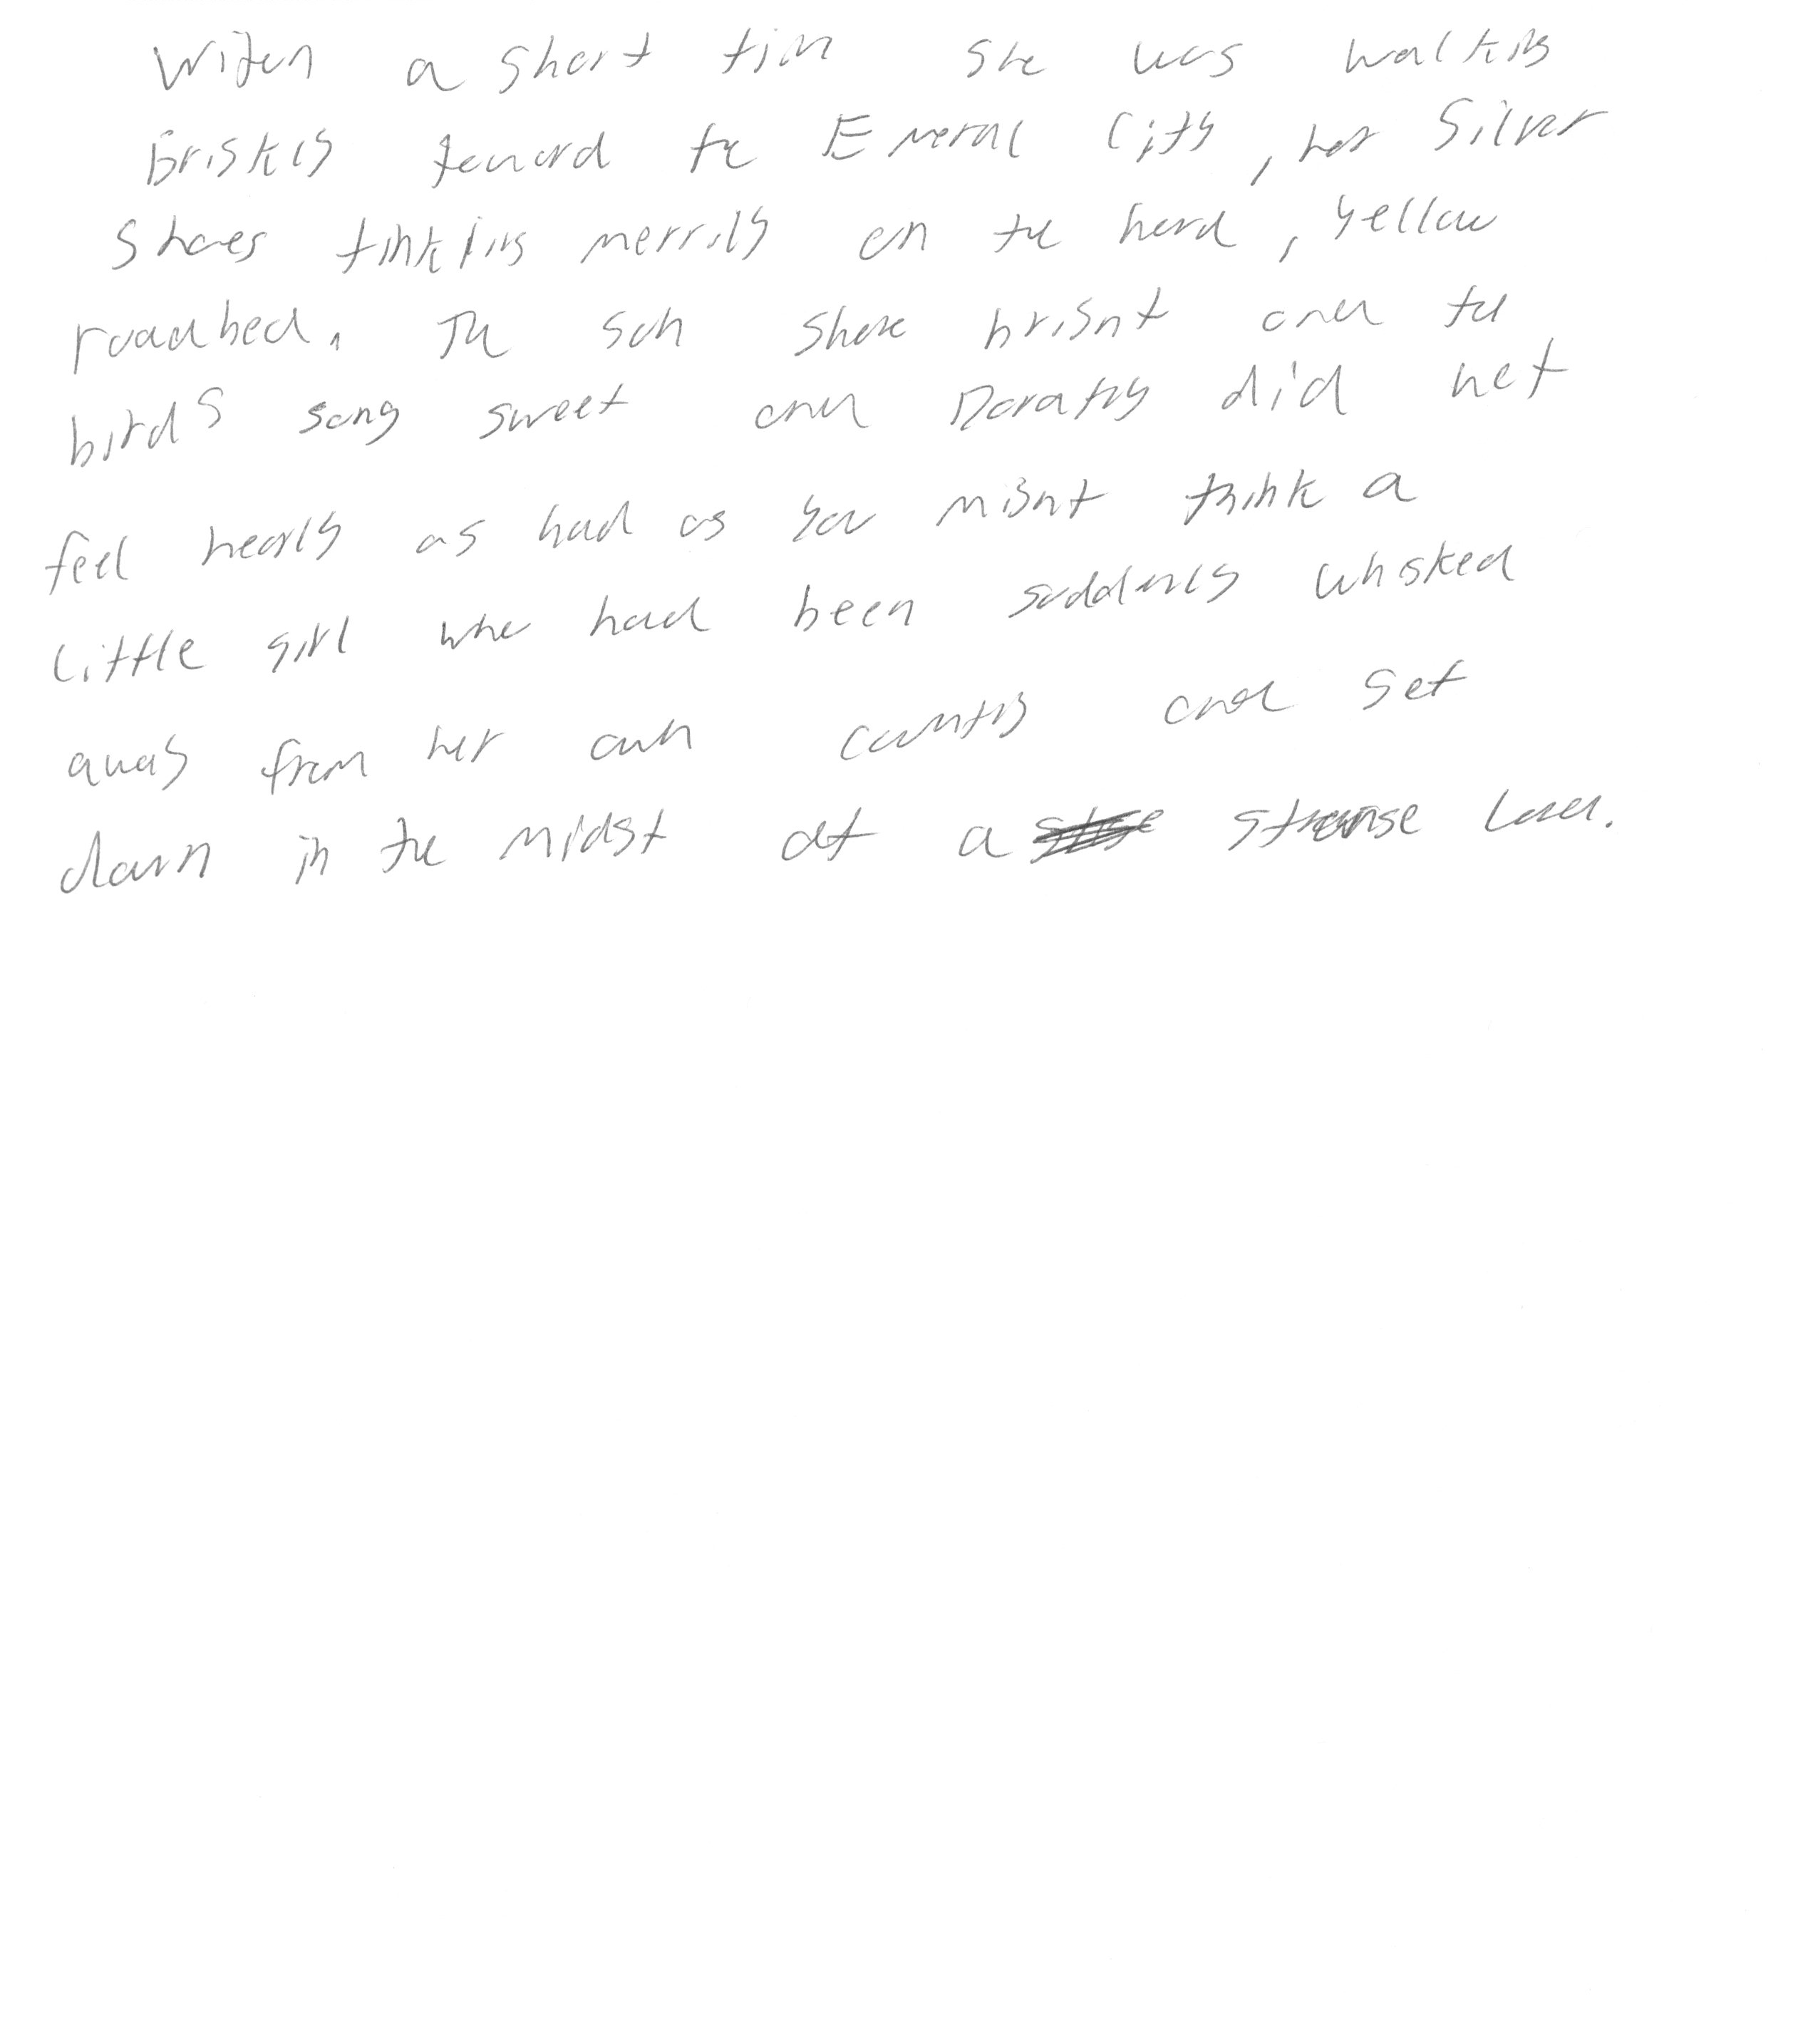 Within a short time she was walking
Briskly toward the Emeral City, her Silver
Shoes tinkling merrily on the hard, yellow
roadbed. The sun shone bright and the
birds sang sweet and Dorothy did not
feel nearly as bad as you might think a
little girl who had been suddenly whisked
away from her own country and set
down in the midst of a strange land.